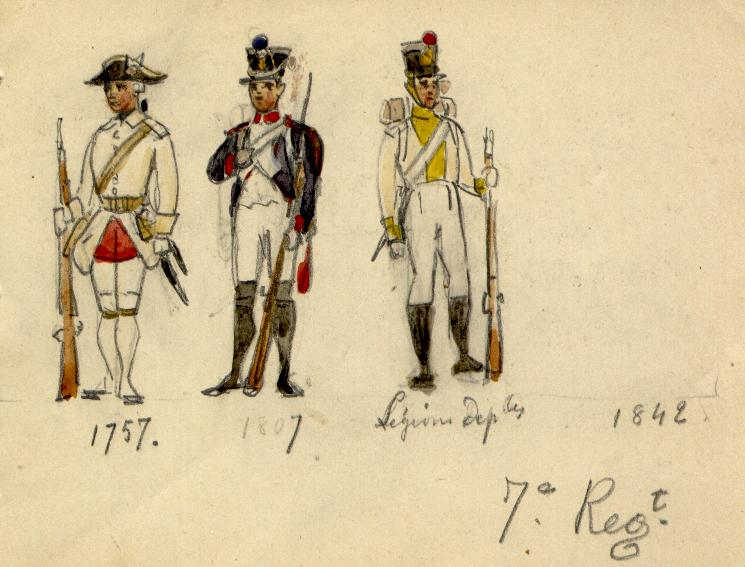 1757.
1807
Légions dep.les
1842.
7e. Regt.